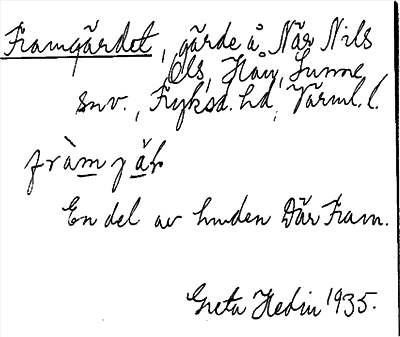 Framgärdet, gärde å När Nils
Ols, Håv, Sunne
snv., Fryksd. hd, Värml. l.
fràm jäḷ
En del av luden Där Fram.
Greta Hedin 1935.